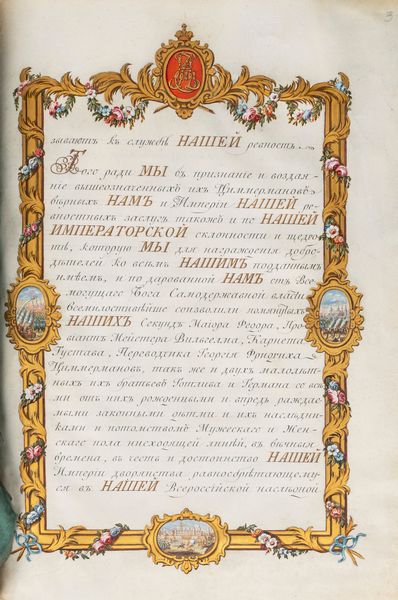 зываютъ къ службѣ НАШЕЙ ревность.
Того ради МЫ въ признаніе и воздая-
ніе вышеозначенныхъ ихъ Циммермановъ
вѣрныхъ НАМЪ и Имперіи НАШЕЙ ре-
вностныхъ заслугъ, такожъ и по НАШЕЙ
ИМПЕРАТОРСКОЙ склонности и щедро-
тѣ, которую МЫ для награжденія добро-
дѣтелей ко всѣмъ НАШИМЪ подданнымъ
имѣемъ, и по дарованной НАМЪ отъ Все-
могущаго Бога Самодержавной власти
Всемилостивѣйше соизволили помянутыхъ
НАШИХЪ Секундъ Маіора Федора, Про-
віантъ Мейстера Вильгелма, Карнета
Густава, Переводчика Георгія Фридриха
Циммермановъ, такъ же и двухъ малолѣт-
ныхъ ихъ братьевъ Готлива и Германа со все-
ми отъ нихъ рожденными и впредь раждае-
мыми законными дѣтми и ихъ наслѣдни-
ками и потомствомъ Мужескаго и Жен-
скаго пола нисходящей линѣи, въ вѣчныя
времена, въ честь и достоинство НАШЕЙ
Имперіи дворянства равнообрѣтающему-
ся въ НАШЕЙ Всероссійской наслѣдной
3